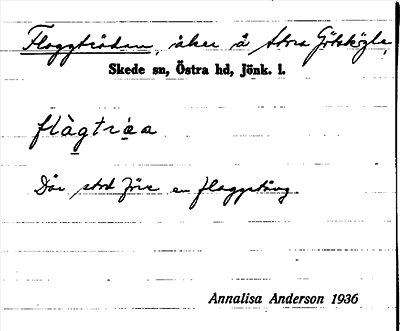 Flaggträdan, åker å Stora Götskögle,
Skede sn, Östra hd, Jönk. l.
flàgtrạa
Där stod förr en flaggstång.
Annalisa Anderson 1936